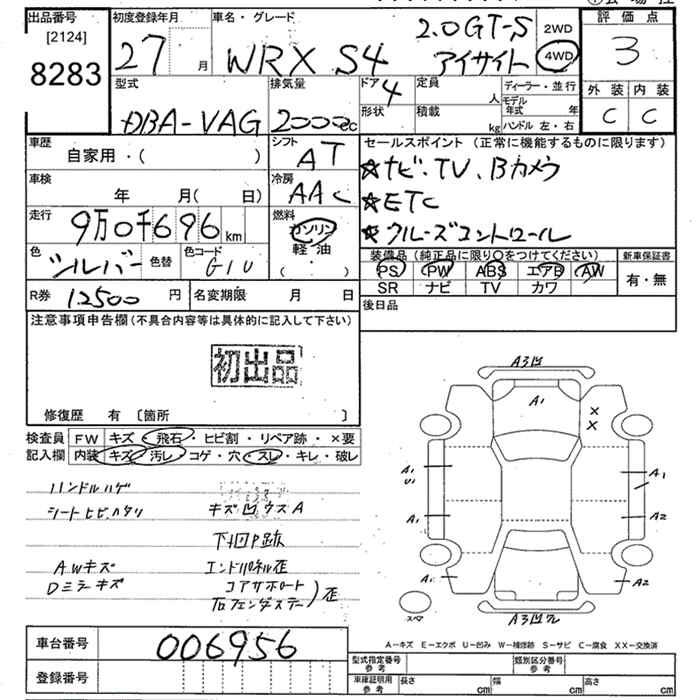 出品番号
[2124]
8283
初度登録年月
27 月
車名・グレード
WRX S4
2.0GT-S
アイサイト
2WD
4WD
評価点
3
外装 内装
C C
型式
DBA-VAG
排気量
2000cc
ドア
4
形状
定員
人
積載
kg
ディーラー・並行
モデル年式 年
ハンドル 左・右
車歴
自家用・( )
シフト
AT
車検
年 月( 日)
冷房
AAC
走行
9万0千696km
燃料
ガソリン
軽油
( )
色
シルバー
色替
色コード
G1U
R券 12500 円
名変期限 月 日
セールスポイント (正常に機能するものに限ります)
★ナビ、TV、Bカメラ
★ETC
★クルーズコントロール
装備品(純正品に限り○をつけてください)
PS PW ABS エアB AW
SR ナビ TV カワ
新車保証書
有・無
後日品
注意事項申告欄(不具合内容等は具体的に記入して下さい)
初出品
修復歴 有 〔箇所 〕
検査員記入欄
FW キズ・飛石・ヒビ割・リペア跡・×要
内装 キズ・汚レ・コゲ・穴・スレ・キレ・破レ
ハンドルハゲ
シートヒビ、カタリ
キズ凹ウスA
下廻P跡
AWキズ
エンドパネル歪
Dミラーキズ
コアサポート
右フェンダステー)歪
A3凹
A1
×
×
A1
U1
A1
A1
A2
A1
A2
スペア
車台番号
006956
登録番号
A-キズ E-エクボ U-凹み W-補修跡 S-サビ C-腐食 XX-交換済
型式指定番号
参考
類別区分番号
参考
車庫証明用
参考
長さ cm
幅 cm
高さ cm